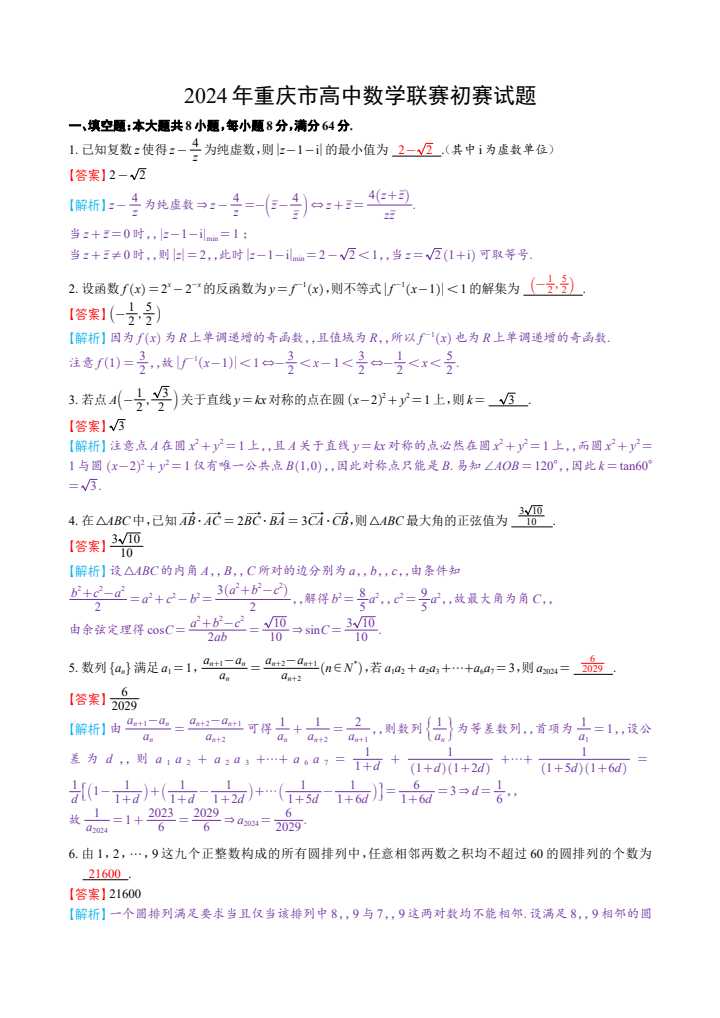 2024 年重庆市高中数学联赛初赛试题
一、填空题:本大题共 8 小题,每小题 8 分,满分 64 分.
1. 已知复数 z 使得 z − 4/z 为纯虚数,则 |z−1−i| 的最小值为 2−√2 .(其中 i 为虚数单位)
【答案】2−√2
【解析】z − 4/z 为纯虚数 ⇒ z − 4/z = −(z̄ − 4/z̄) ⇔ z + z̄ = 4(z+z̄)/(zz̄).
当 z + z̄ = 0 时,,|z−1−i|min = 1 ;
当 z + z̄ ≠ 0 时,,则 |z| = 2,,此时 |z−1−i|min = 2 − √2 < 1,,当 z = √2(1+i) 可取等号.
2. 设函数 f(x) = 2ˣ − 2⁻ˣ 的反函数为 y = f⁻¹(x),则不等式 |f⁻¹(x−1)| < 1 的解集为 (−1/2, 5/2) .
【答案】(−1/2, 5/2)
【解析】因为 f(x) 为 R 上单调递增的奇函数,,且值域为 R,,所以 f⁻¹(x) 也为 R 上单调递增的奇函数.
注意 f(1) = 3/2,,故 |f⁻¹(x−1)| < 1 ⇔ −3/2 < x − 1 < 3/2 ⇔ −1/2 < x < 5/2.
3. 若点 A(−1/2, √3/2) 关于直线 y = kx 对称的点在圆 (x−2)² + y² = 1 上,则 k = √3 .
【答案】√3
【解析】注意点 A 在圆 x² + y² = 1 上,,且 A 关于直线 y = kx 对称的点必然在圆 x² + y² = 1 上,,而圆 x² + y² =
1 与圆 (x−2)² + y² = 1 仅有唯一公共点 B(1,0),,因此对称点只能是 B. 易知 ∠AOB = 120°,,因此 k = tan60°
= √3.
4. 在 △ABC 中,已知 AB→·AC→ = 2BC→·BA→ = 3CA→·CB→,则 △ABC 最大角的正弦值为 3√10/10 .
【答案】3√10/10
【解析】设 △ABC 的内角 A,,B,,C 所对的边分别为 a,,b,,c,,由条件知
(b²+c²−a²)/2 = a² + c² − b² = 3(a²+b²−c²)/2,,解得 b² = 8/5 a²,,c² = 9/5 a²,,故最大角为角 C,,
由余弦定理得 cosC = (a²+b²−c²)/2ab = √10/10 ⇒ sinC = 3√10/10.
5. 数列 {aₙ} 满足 a₁ = 1, (aₙ₊₁−aₙ)/aₙ = (aₙ₊₂−aₙ₊₁)/aₙ₊₂ (n∈N*),若 a₁a₂ + a₂a₃ + ⋯ + a₆a₇ = 3,则 a₂₀₂₄ = 6/2029 .
【答案】6/2029
【解析】由 (aₙ₊₁−aₙ)/aₙ = (aₙ₊₂−aₙ₊₁)/aₙ₊₂ 可得 1/aₙ + 1/aₙ₊₂ = 2/aₙ₊₁,,则数列 {1/aₙ} 为等差数列,,首项为 1/a₁ = 1,,设公
差为 d,,则 a₁a₂ + a₂a₃ + ⋯ + a₆a₇ = 1/(1+d) + 1/((1+d)(1+2d)) + ⋯ + 1/((1+5d)(1+6d)) =
1/d[(1 − 1/(1+d)) + (1/(1+d) − 1/(1+2d)) + ⋯ (1/(1+5d) − 1/(1+6d))] = 6/(1+6d) = 3 ⇒ d = 1/6,,
故 1/a₂₀₂₄ = 1 + 2023/6 = 2029/6 ⇒ a₂₀₂₄ = 6/2029.
6. 由 1, 2, ⋯, 9 这九个正整数构成的所有圆排列中,任意相邻两数之积均不超过 60 的圆排列的个数为
21600 .
【答案】21600
【解析】一个圆排列满足要求当且仅当该排列中 8,,9 与 7,,9 这两对数均不能相邻. 设满足 8,,9 相邻的圆